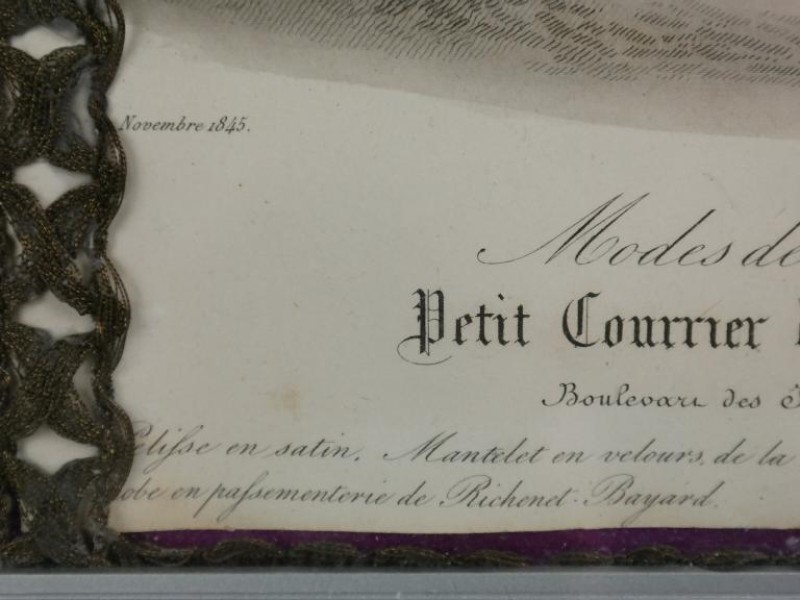 Novembre 1845.
Modes de
Petit Courrier
Boulevart des
Pelisse en satin. Mantelet en velours, de la
obe en passementerie de Richenet-Bayard.